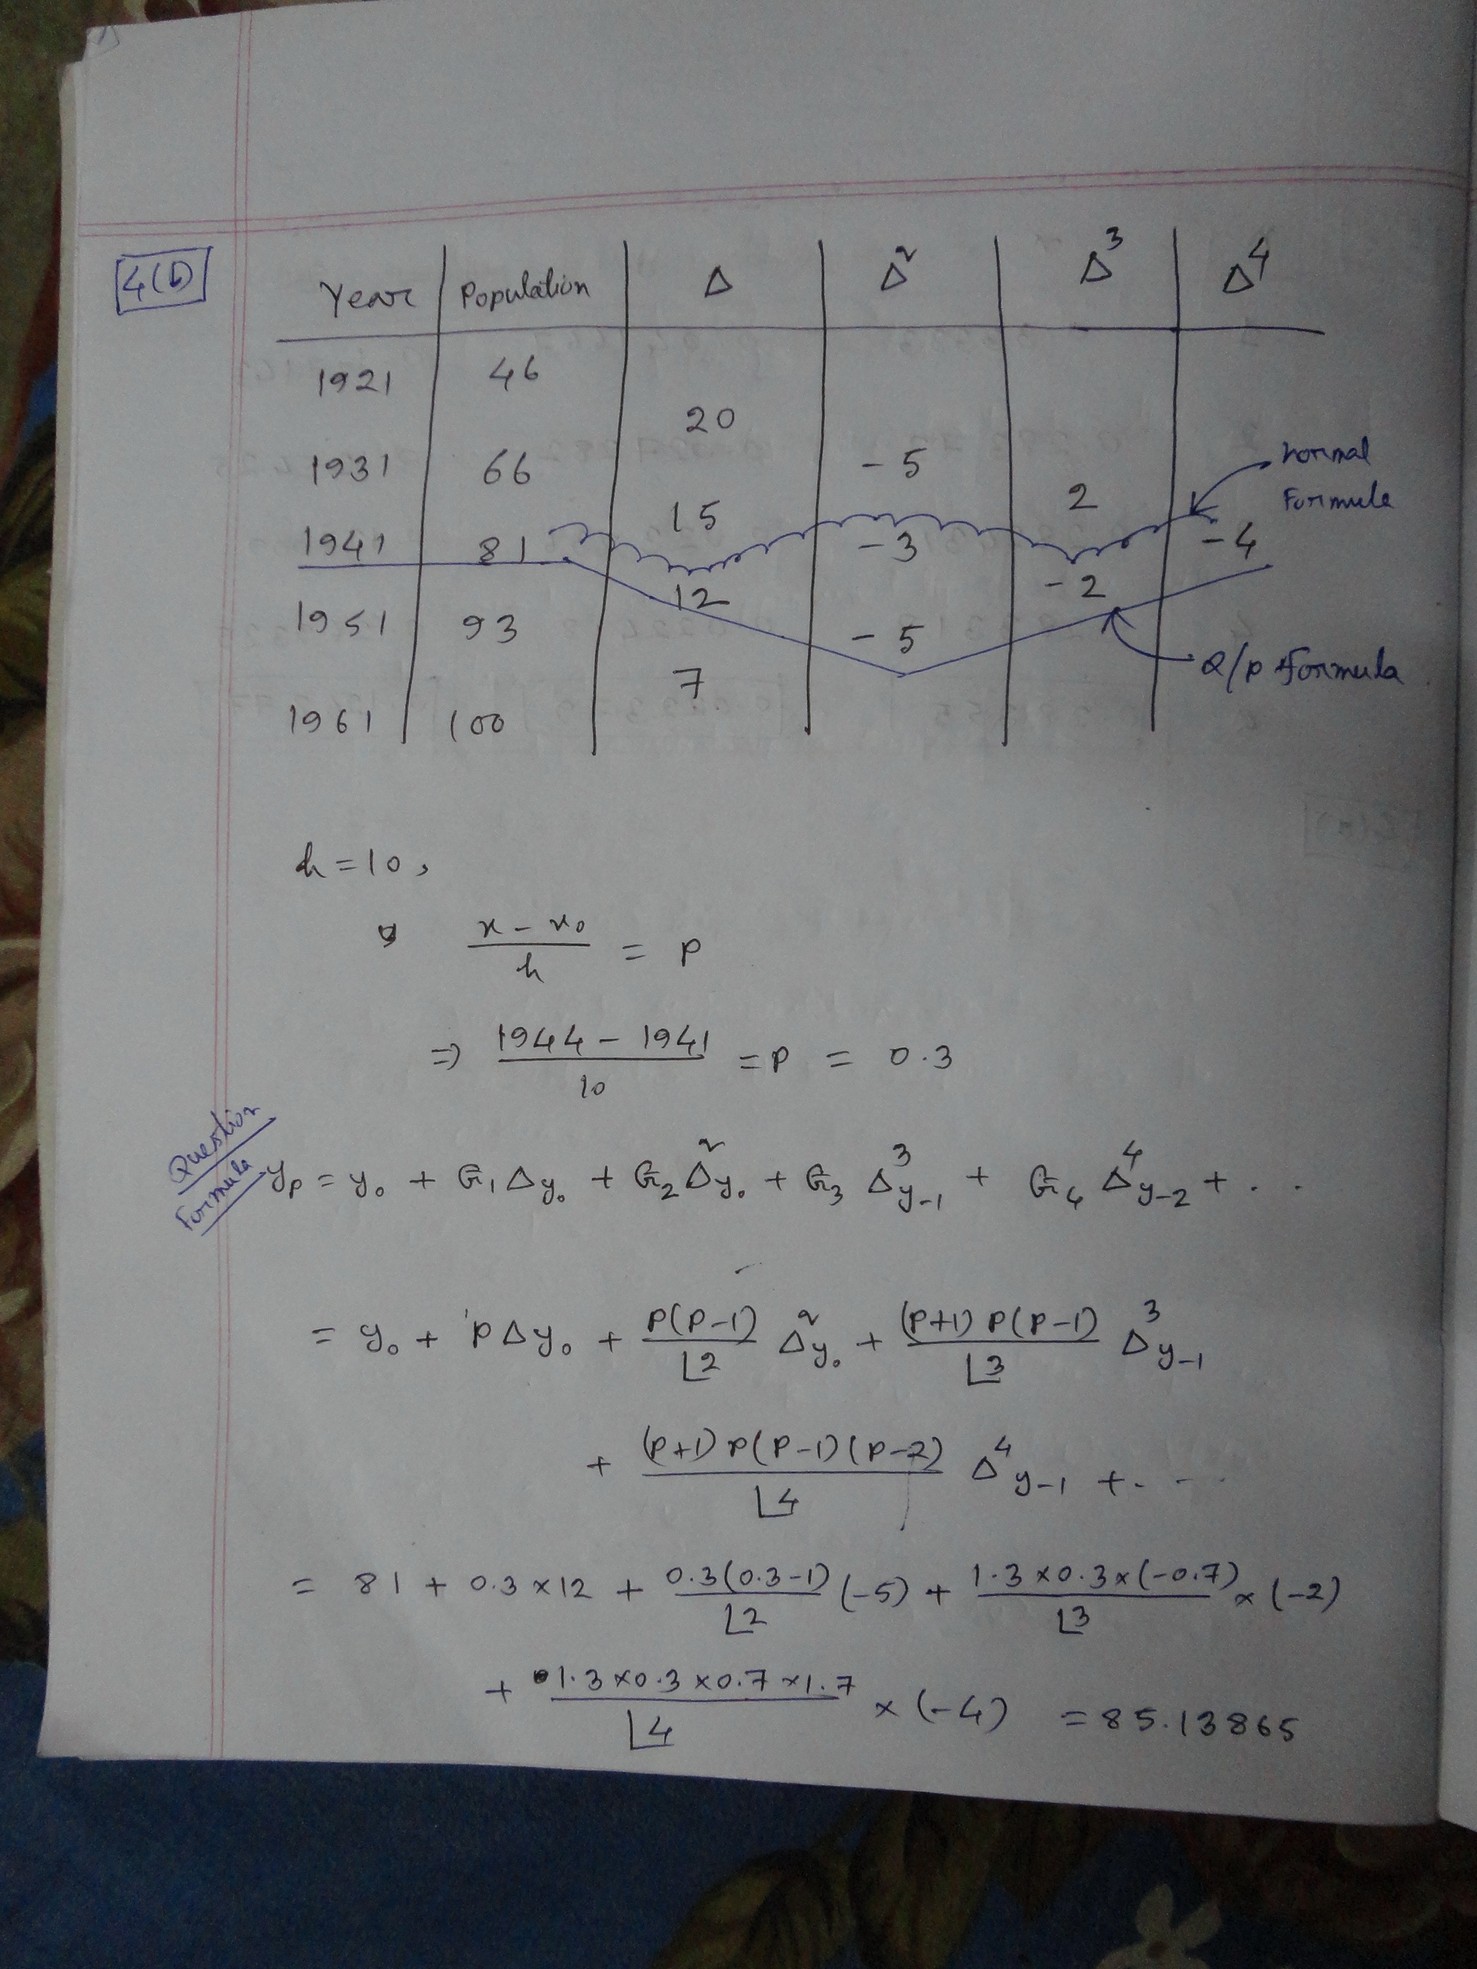 4(b)
Year | Population | Δ | Δ² | Δ³ | Δ⁴
1921 46
20
1931 66 -5
normal
15 2 Formula
1941 81 -3 -4
12 -2
1951 93 -5
7 Q/p Formula
1961 100
h = 10,
(x - x₀)/h = p
⇒ (1944 - 1941)/10 = p = 0.3
Question
Formula
yₚ = y₀ + G₁Δy₀ + G₂Δ²y₀ + G₃ Δ³y₋₁ + G₄ Δ⁴y₋₂ + ...
= y₀ + pΔy₀ + p(p-1)/⌊2 Δ²y₀ + (p+1)p(p-1)/⌊3 Δ³y₋₁
+ (p+1)p(p-1)(p-2)/⌊4 Δ⁴y₋₁ + ...
= 81 + 0.3×12 + 0.3(0.3-1)/⌊2 (-5) + 1.3×0.3×(-0.7)/⌊3 × (-2)
+ 1.3×0.3×0.7×1.7/⌊4 × (-4) = 85.13865